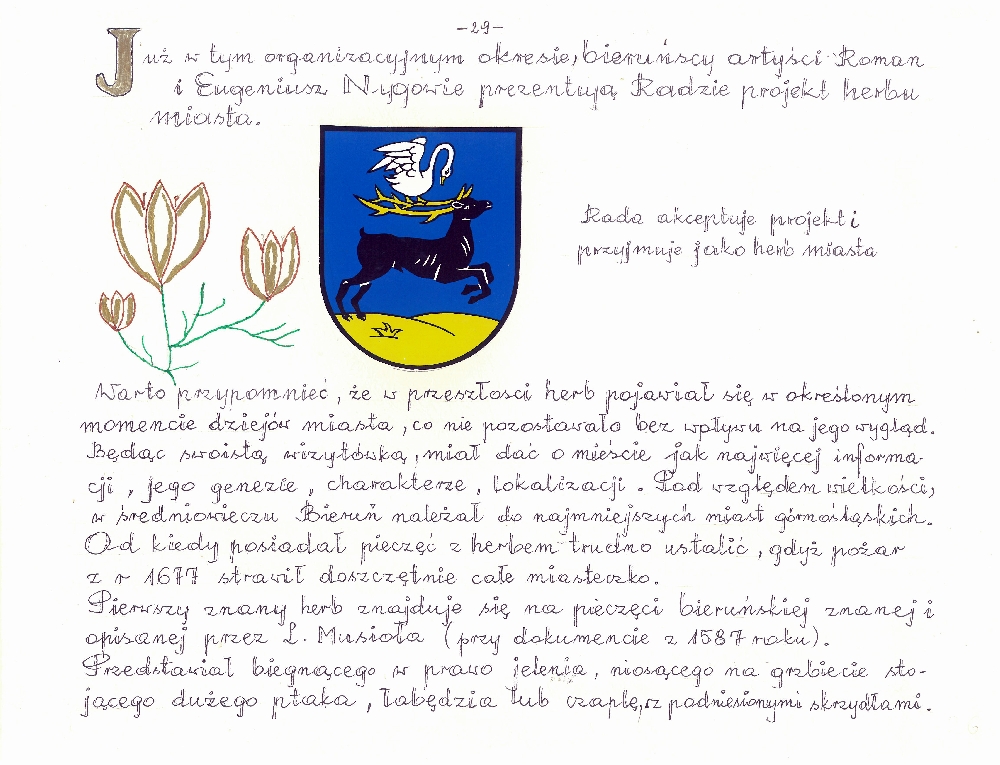 -29-
Już w tym organizacyjnym okresie, bieruńscy artyści Roman
i Eugeniusz Nygowie prezentują Radzie projekt herbu
miasta.
Rada akceptuje projekt i
przyjmuje jako herb miasta
Warto przypomnieć, że w przeszłosci herb pojawiał się w określonym
momencie dziejów miasta, co nie pozostawało bez wpływu na jego wygląd.
Będąc swoistą wizytówką, miał dać o mieście jak najwięcej informa-
cji, jego genezie, charakterze, lokalizacji. Pod względem wielkości,
w średniowieczu Bieruń należał do najmniejszych miast górnośląskich.
Od kiedy posiadał pieczęć z herbem trudno ustalić, gdyż pożar
z r 1677 strawił doszczętnie całe miasteczko.
Pierwszy znany herb znajduje się na pieczęci bieruńskiej znanej i
opisanej przez L. Musioła (przy dokumencie z 1587 roku).
Przedstawiał biegnącego w prawo jelenia, niosącego na grzbiecie sto-
jącego dużego ptaka, łabędzia lub czaplę, z podniesionymi skrzydłami.